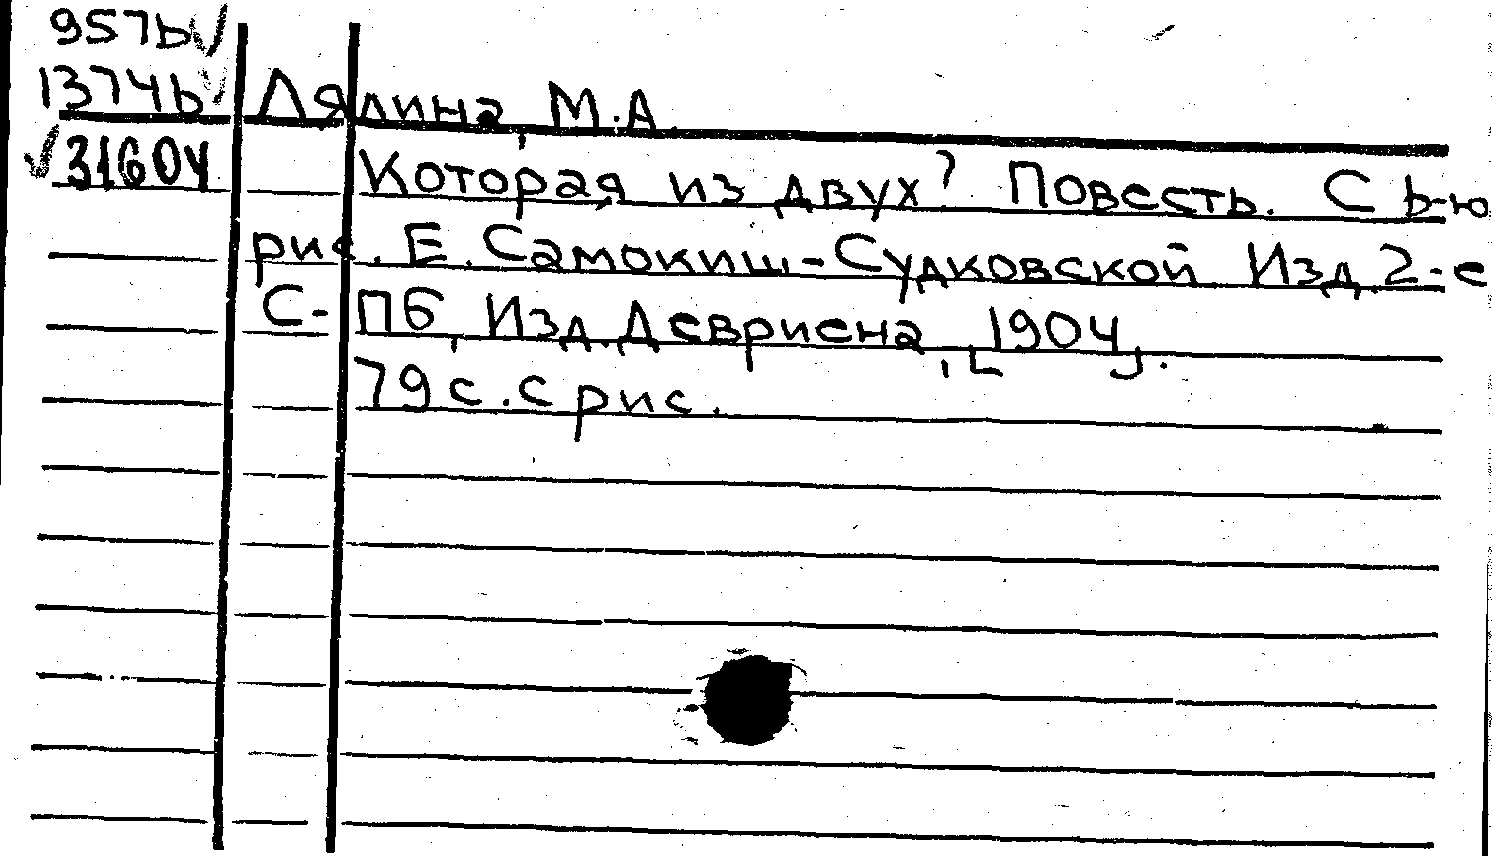 957ь
1374ь Лялина, М.А.
3160ч Которая из двух? Повесть. С ь-ю
рис. Е. Самокиш-Судковской Изд. 2-е
С-Пб, Изд. Девриена, [1904].
79 с. с рис.